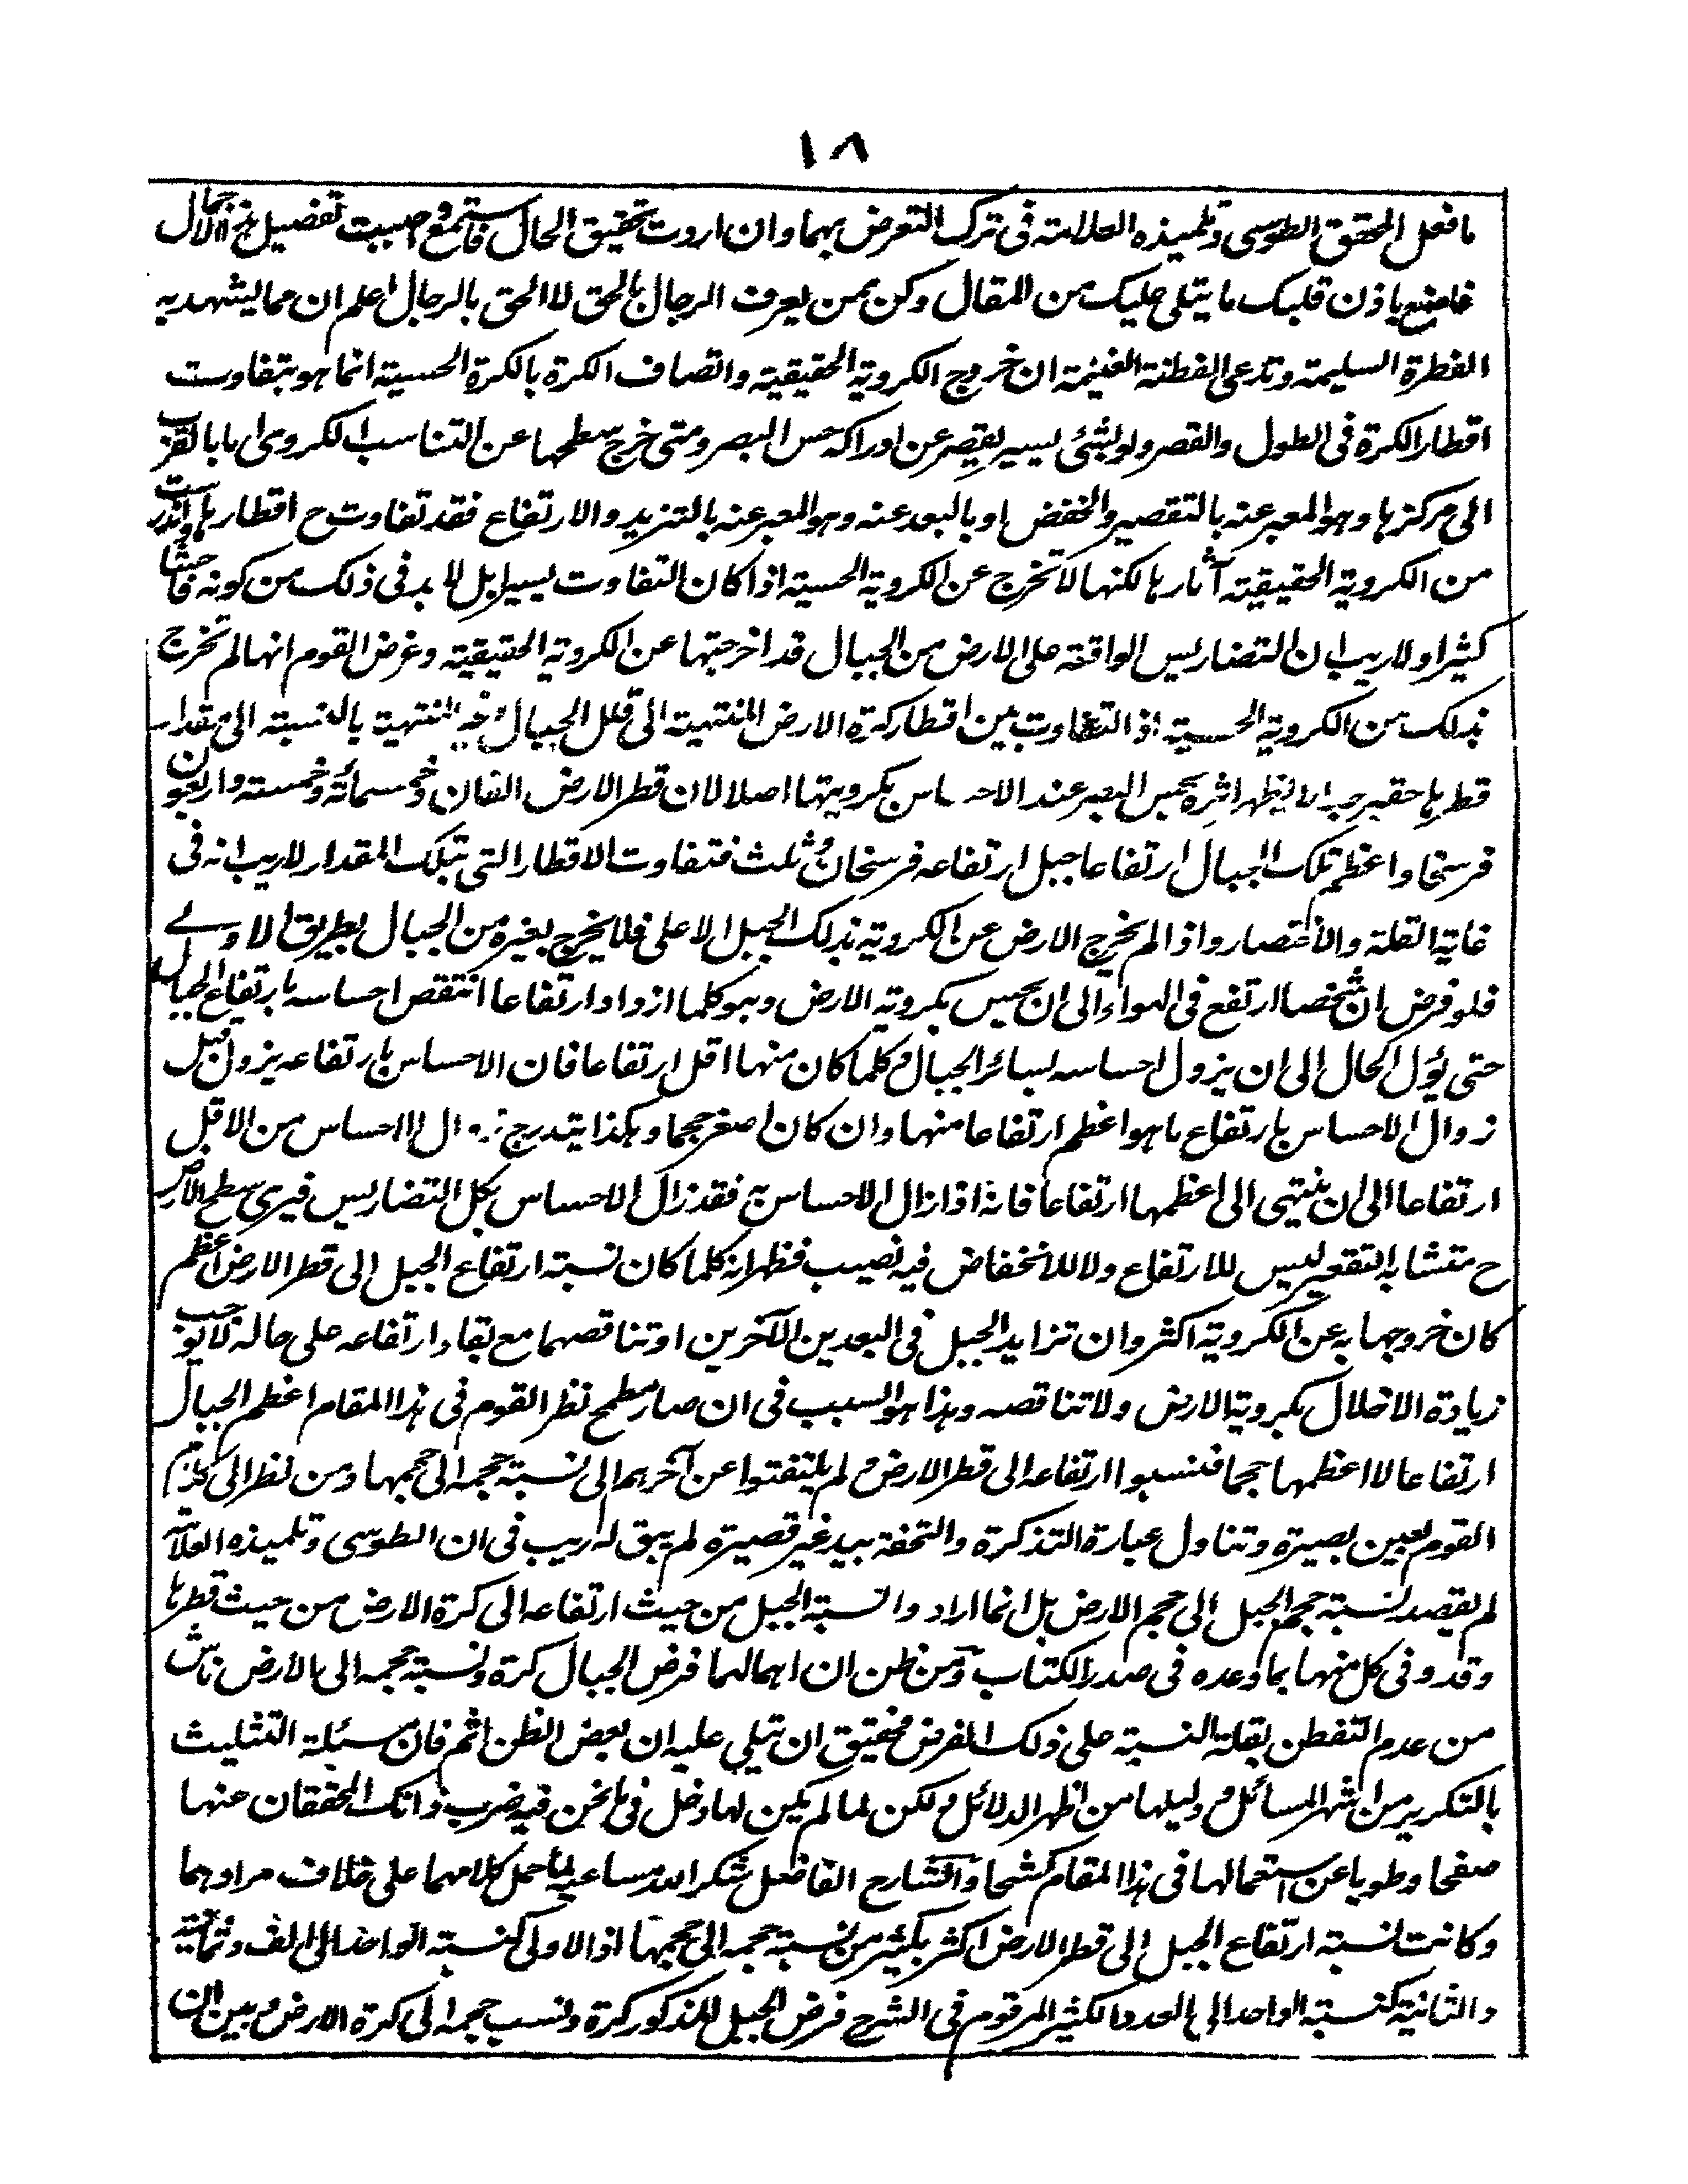 ١٨
ما فعل المحقق الطوسى وتلميذه العلامة فى ترك التعرض بهما وان اردت تحقيق الحال فاستمع واحببت تفصيل الاجمال
فاصنع باذن قلبك ما يتلى عليك من المقال وكن بمن يعرف الرجال بالحق لا الحق بالرجال اعلم ان مما يشهد به
الفطرة السليمة وتدعى الفطنة ان خروج الكروية الحقيقية واتصاف الكرة بالكرة الحسية انما هو بتفاوت
اقطار الكرة فى الطول والقصر ولو بشئ يسير يقصر عن ادراكه حس البصر ومتى خرج سطحها عن التناسب الكروى اما بالقرب
الى مركزها وهو المعبر عنه بالتقصير والخفض او بالبعد عنه وهو المعبر عنه بالتزيد والارتفاع فقد تفاوت ح اقطارها واندرست
من الكروية الحقيقية آثارها لكنها لا تخرج عن الكروية الحسية اذا كان التفاوت يسيرا بل لا بد فى ذلك من كونه فاحشا
كثيرا ولا ريب ان التضاريس الواقعة على الارض من الجبال قد اخرجتها عن الكروية الحقيقية وغرض القوم انها لم تخرج
بذلك من الكروية الحسية اذ التفاوت بين اقطار كرة الارض المنتهية الى قلل الجبال وغير المنتهية بالنسبة الى مقدار
قطرها حقير جدا لا يظهر اثره بحس البصر عند الاحساس بكرويتها اصلا لان قطر الارض الفان وخمسمائة وخمسة واربعون
فرسخا واعظم تلك الجبال ارتفاعا جبل ارتفاعه فرسخان وثلث فتفاوت الاقطار التى بتلك المقدار لا ريب انه فى
غاية القلة والاختصار واذا لم يخرج الارض عن الكروية بذلك الجبل الاعلى فلا يخرج بغيره من الجبال بطريق الاولے
فلو فرض ان شخصا ارتفع فى الهواء الى ان يحس بكروية الارض وهو كلما ازداد ارتفاعا انتقص احساسه بارتفاع الجبال
حتى يؤل الحال الى ان يزول احساسه بسائر الجبال وكلما كان منها اقل ارتفاعا فان الاحساس بارتفاعه يزول قبل
زوال الاحساس بارتفاع ما هو اعظم ارتفاعا منها وان كان اصغر حجما وهكذا يتدرج زوال الاحساس من الاقل
ارتفاعا الى ان ينتهى الى اعظمها ارتفاعا فانه اذا زال الاحساس به فقد زال الاحساس بكل التضاريس فيرى سطح الارض
ح متشابه التقعير ليس للارتفاع ولا للانخفاض فيه نصيب فظهر انه كلما كان نسبة ارتفاع الجبل الى قطر الارض اعظم
كان خروجها به عن الكروية اكثر وان تزايد الجبل فى البعدين الآخرين او تناقصهما مع بقاء ارتفاعه على حاله لا يوجب
زيادة الاخلال بكروية الارض ولا تناقصه وهذا هو السبب فى ان صار مطمح نظر القوم فى هذا المقام اعظم الجبال
ارتفاعا لا اعظمها حجما فنسبوا ارتفاعه الى قطر الارض ولم يلتفتوا عن آخرهم الى نسبة حجمه الى حجمها ومن نظر الى كلام
القوم بعين بصيرة وتناول عبارة التذكرة والتحفة بيد غير قصيرة لم يبق له ريب فى ان الطوسى وتلميذه العلامة
لم يقصد نسبة حجم الجبل الى حجم الارض بل انما ارادوا نسبة الجبل من حيث ارتفاعه الى كرة الارض من حيث قطرها
وقد وفى كل منهما بما وعده فى صدر الكتاب ومن ظن ان اهمالهما فرض الجبال كرة ونسبة حجمه الى الارض ناش
من عدم التفطن بقلة النسبة على ذلك الفرض فحقيق ان تتلى عليه ان بعض الظن اثم فان مسئلة التثليث
بالتكرير من اشهر المسائل ودليلها من اظهر الدلائل ولكن لما لم يكن لها دخل فى ما نحن فيه ضرب ذانك المحققان عنها
صفحا وطويا عن استعمالها فى هذا المقام كشحا والشارح الفاضل شكر الله مساعيه لما حمل كلامهما على خلاف مرادهما
وكانت نسبة ارتفاع الجبل الى قطر الارض اكثر بكثير من نسبة حجمه الى حجمها اذ الاولى كنسبة الواحد الى الف وثمانية
والثانية كنسبة الواحد الى العدد الكثير المرقوم فى الشرح فرض الجبل المذكور كرة ونسب حجمه الى كرة الارض وبين ان